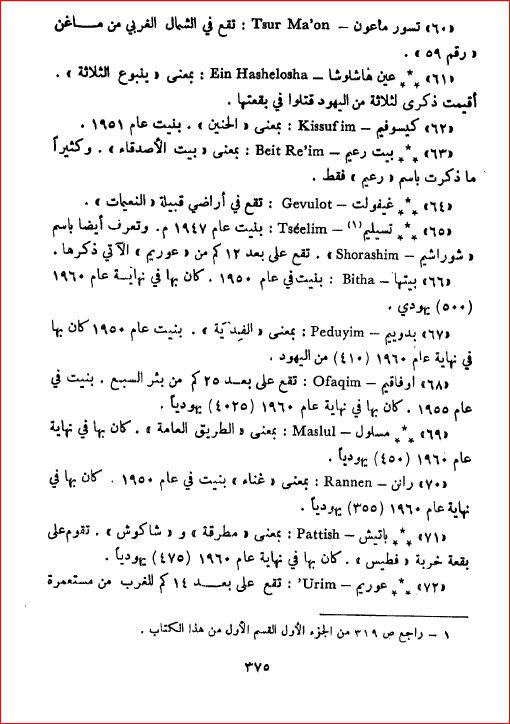 «٦٠» تسور ماعون – Tsur Ma'on : تقع في الشمال الغربي من مــاغن
« رقم ٥٩ » .
«٦١» *** عين هاشلوشا – Ein Hashelosha : بمعنى « ينبوع الثلاثة » .
أقيمت ذكرى لثلاثة من اليهود قتلوا في بقعتها .
«٦٢» كيسوفيم – Kissufim : بمعنى « الحنين » . بنيت عام ١٩٥١ .
«٦٣» *** بيت رعيم – Beit Re'im : بمعنى « بيت الأصدقاء » . وكثيراً
ما ذكرت باسم « رعيم » فقط .
«٦٤» *** غيفولت – Gevulot : تقع في أراضي قبيلة « النعيمات » .
«٦٥» *** تسيليم(١) – Tséelim : بنيت عام ١٩٤٧ م . وتعرف أيضا باسم
« شوراشيم – Shorashim » . تقع على بعد ١٢ كم من « عوريم » الآتي ذكرها .
«٦٦» بيتها – Bitha : بنيت في عام ١٩٥٠ . كان بها في نهايـة عام ١٩٦٠
(٥٠٠) يهودي .
«٦٧» بدوييم – Peduyim : بمعنى « الفِيدْية » . بنيت عام ١٩٥٠ كان بها
في نهاية عام ١٩٦٠ (٤١٠) من اليهود .
«٦٨» اوفاقيم – Ofaqim : تقع على بعــد ٢٥ كم من بئر السبع . بنيت في
عام ١٩٥٥ . كان بها في نهاية عام ١٩٦٠ (٤٠٢٥) يهودياً .
«٦٩» *** مسلول – Maslul : بمعنى « الطريق العامة » . كان بها في نهاية
عام ١٩٦٠ (٤٥٠) يهودياً .
«٧٠» رانن – Rannen : بمعنى « غناء » بنيت في عام ١٩٥٠ . كان بها في
نهاية عام ١٩٦٠ (٣٥٥) يهودياً .
«٧١» *** باتيش – Pattish : بمعنى « مطرقة » و « شاكوش » . تقوم على
بقعة خربة « فطيس » . كان بها في نهاية عام ١٩٦٠ (٤٧٥) يهودياً .
«٧٢» *** عوريم – Urim' : تقع على بعــد ١٤ كم للغرب من مستعمرة
١ – راجع ص ٣١٩ من الجزء الأول القسم الأول من هذا الكتاب .
٣٧٥